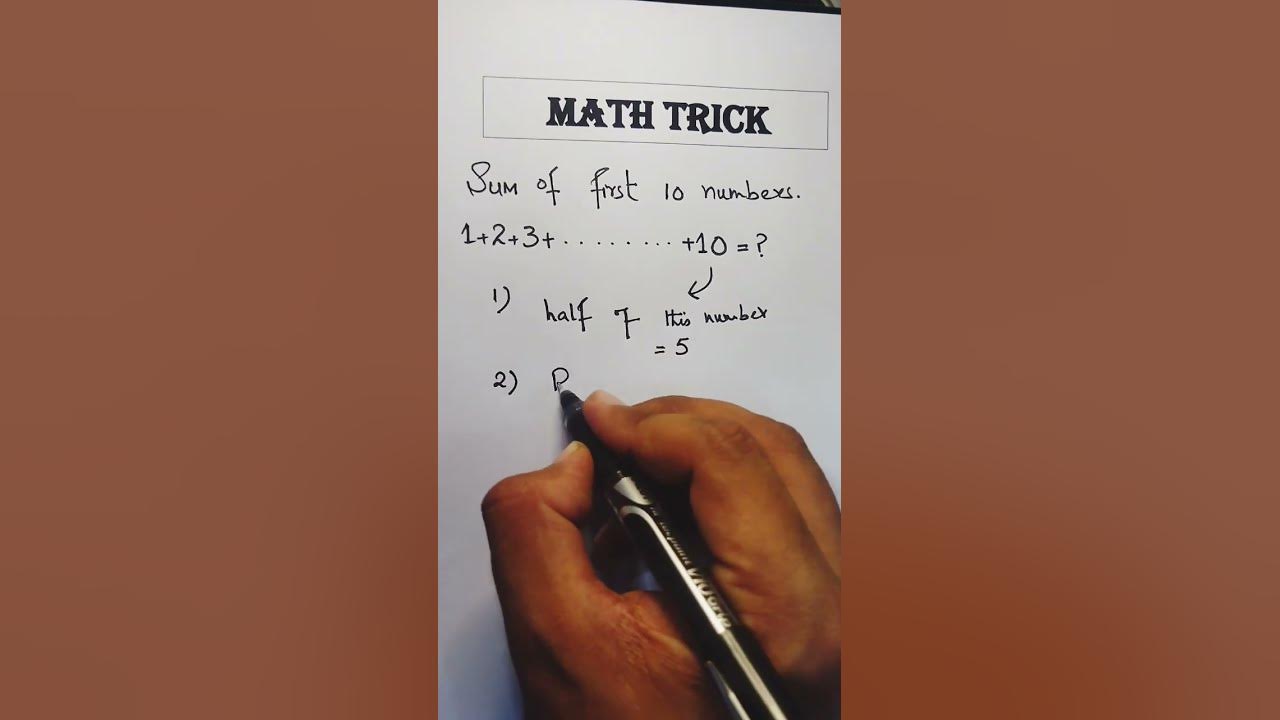 MATH TRICK
Sum of first 10 numbers.
1+2+3+ . . . . . . . . +10 = ?
1) half of this number
= 5
2) P